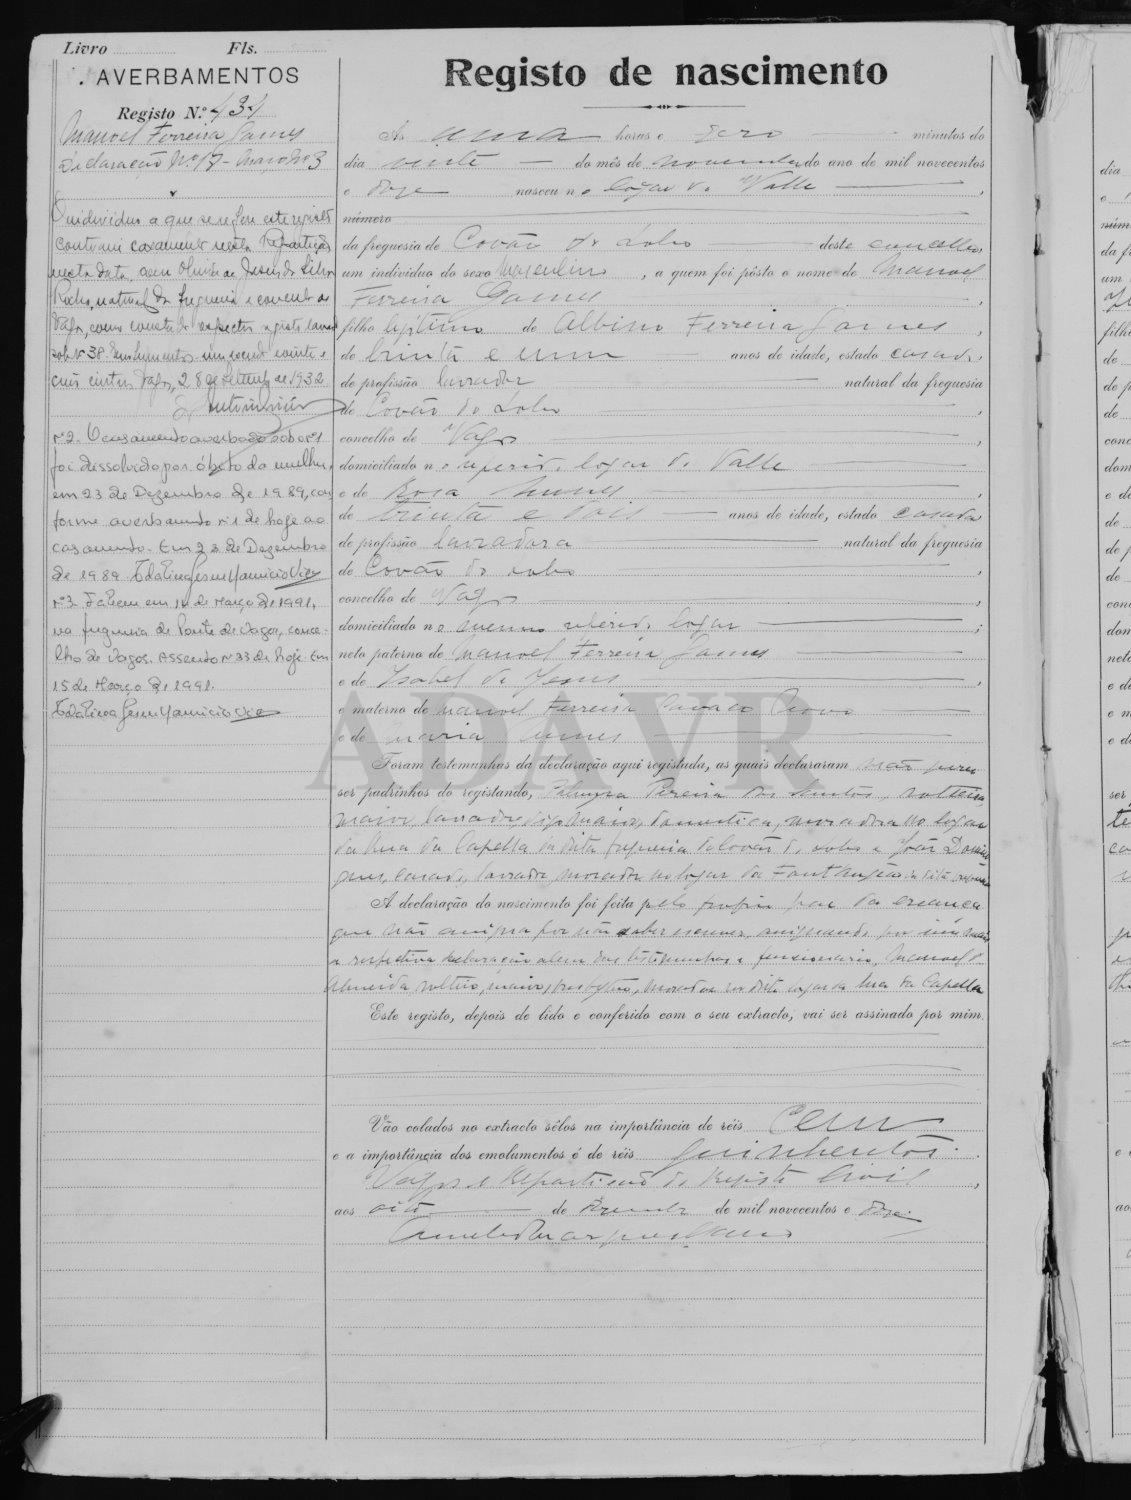 Livro Fls.
AVERBAMENTOS
Registo N.º 434
Manoel Ferreira Gomes
Declaração Nº 17 - Maço Nº 3
O individuo a que se refere este registo
contraiu casamento nesta Repartição
nesta data, com Olinda de Jesus da Silva
Rocha, natural da freguesia e concelho de
Vagos, como consta do respectivo registo lavrado
sob nº 38. Emolumentos um escudo e vinte e
Vagos, 28 de setembro de 1932
nº 2. O casamento averbado sob o nº 1
foi dissolvido por óbito da mulher,
em 23 de Dezembro de 1989, con
forme averbamento nº 1 de hoje ao
casamento. Em 23 de Dezembro
de 1989
Nº 3 Faleceu em 14 de Março de 1991,
na freguesia de Ponte de Vagos, conce-
lho de Vagos. Assento nº 33 de hoje. Em
15 de Março de 1991.
Registo de nascimento
Á uma horas e zero minutos do
dia vinte do mês de novembro do ano de mil novecentos
e doze nasceu no logar do Valle ,
número
da freguesia de Covão do Lobo deste concelho
um individuo do sexo masculino , a quem foi pôsto o nome de Manoel
Ferreira Gomes ,
filho legitimo de Albino Ferreira Gomes ,
de trinta e um anos de idade, estado casado,
de profissão lavrador natural da freguesia
de Covão do Lobo ,
concelho de Vagos ,
domiciliado no referido logar do Valle
e de Rosa Nunes ,
de trinta e dois anos de idade, estado casada
de profissão lavradora natural da freguesia
de Covão do Lobo ,
concelho de Vagos ;
domiciliado no mesmo referido logar ;
neto paterno de Manoel Ferreira Gomes
e de Isabel de Jesus ,
e materno de Manoel Ferreira Novo
e de Maria Nunes
Foram testemunhas da declaração aqui registada, as quais declararam não querer
ser padrinhos do registando, Pereira dos Santos, solteira,
maior, lavrador, digo maior, domestica, moradora no logar
da Rua da Capella da dita freguesia de Covão do Lobo e João Domin
gues, casado, lavrador, morador no logar da na dita freguesia
A declaração do nascimento foi feita pelo proprio pae da creança
que não assigna por não saber escrever, assignando por
a respectiva declaração alem das testemunhas e funcionario, Manoel de
Almeida, solteiro, maior, presbytero, morador no dito logar da Rua da Capella
Este registo, depois de lido e conferido com o seu extracto, vai ser assinado por mim.
Vão colados no extracto sêlos na importância de réis Cem
e a importância dos emolumentos é de réis quinhentos.
Vagos e Repartição do Registo Civil ,
aos oito de Dezembro de mil novecentos e doze.
ADAVR